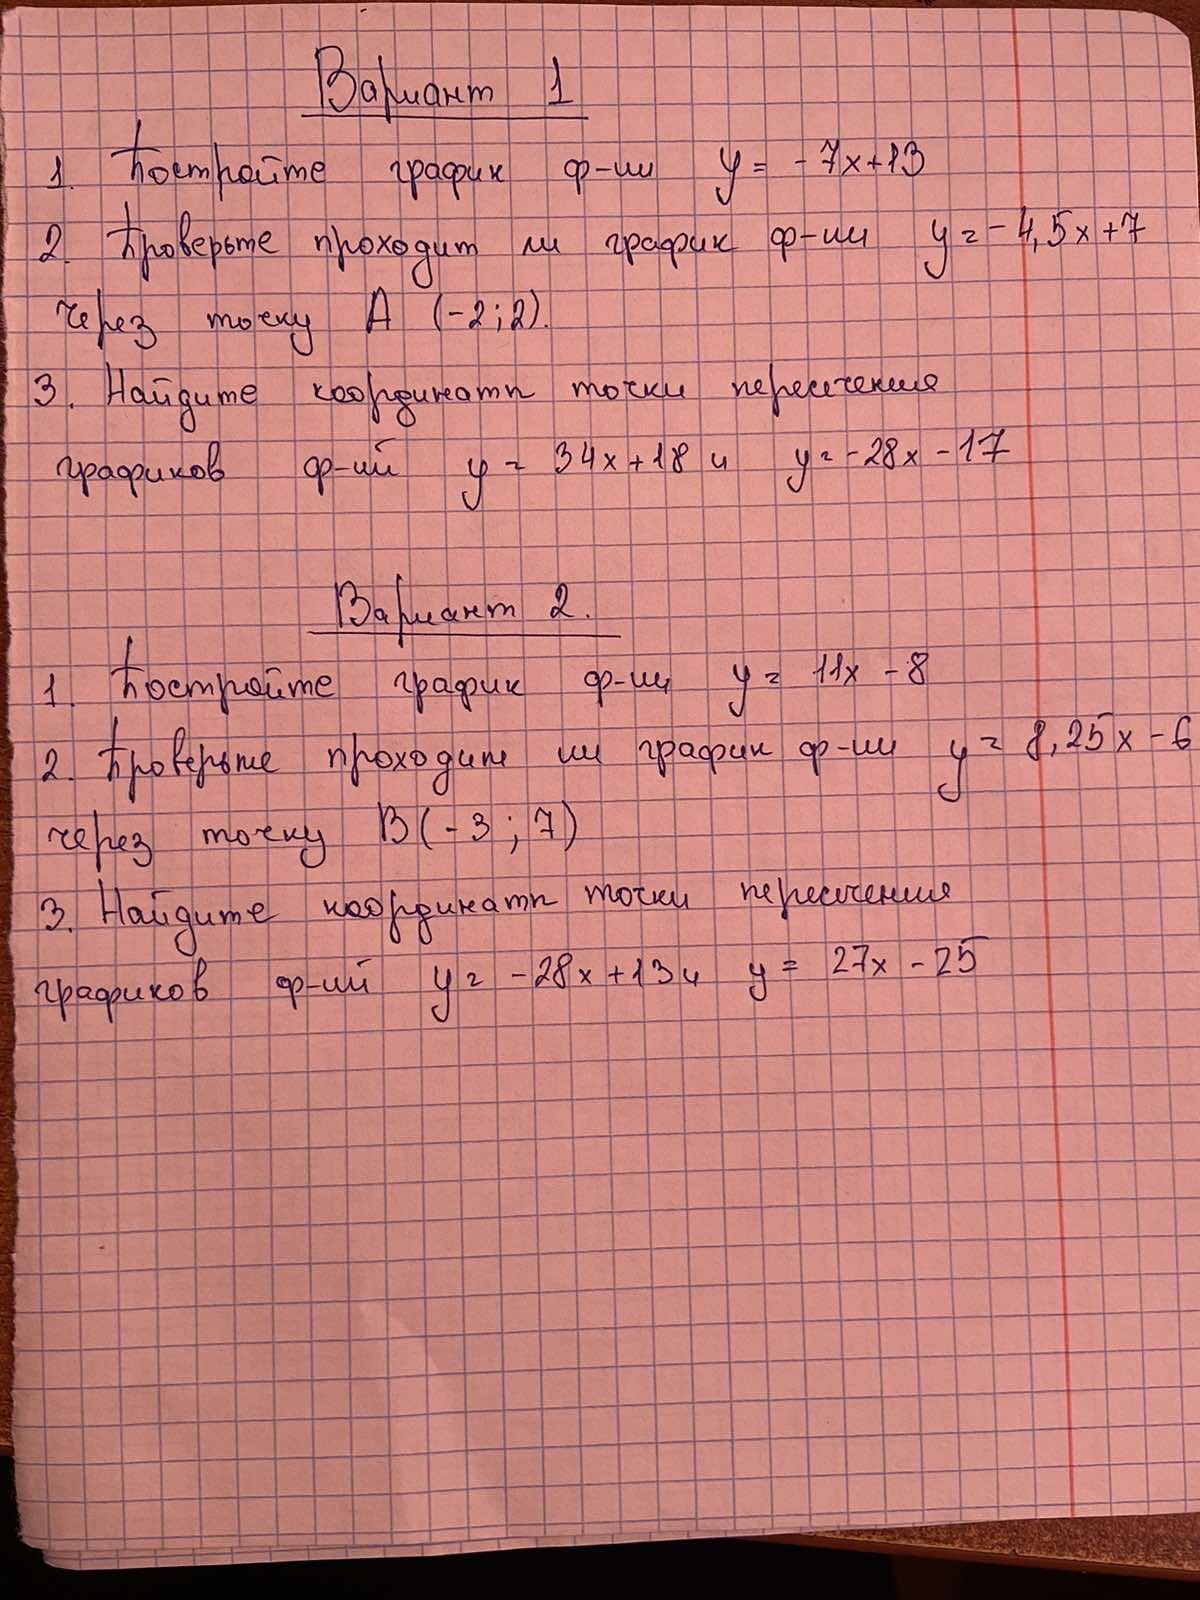 Вариант 1
1. Постройте график ф-ии y = -7x+13
2. Проверьте проходит ли график ф-ии y = -4,5x+7
через точку А (-2;2).
3. Найдите координаты точки пересечения
графиков ф-ий y = 34x+18 и y = -28x -17
Вариант 2.
1. Постройте график ф-ии y = 11x -8
2. Проверьте проходит ли график ф-ии y = 8,25x -6
через точку В(-3;7)
3. Найдите координаты точки пересечения
графиков ф-ий y = -28x+13 и y = 27x -25